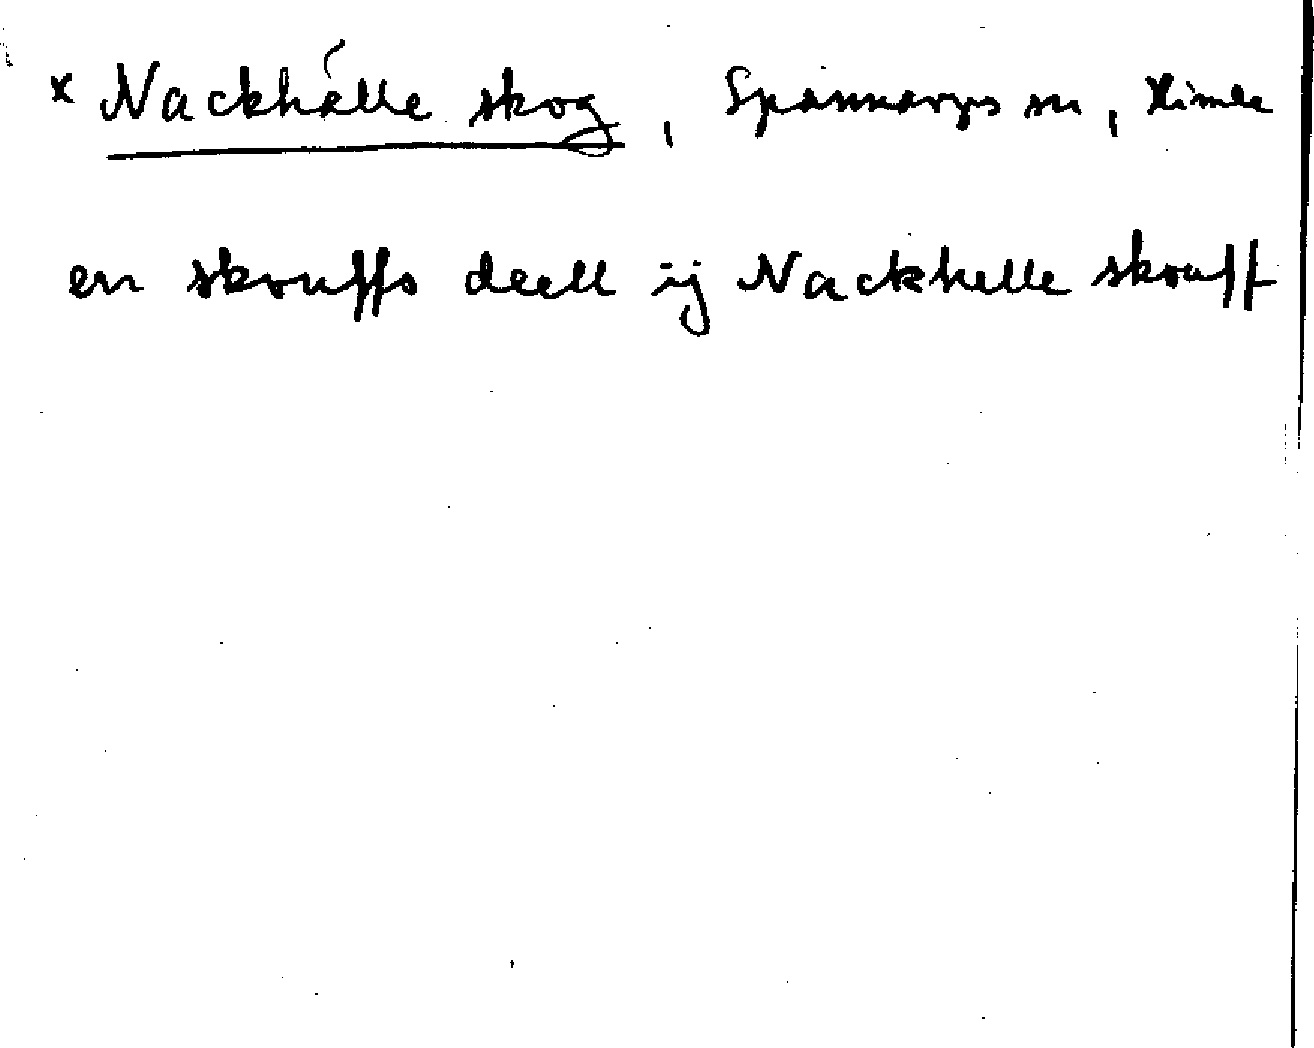 x Nackhälle skog, Spannarps sn, Himle
en skouffs deell ij Nackhelle skouff